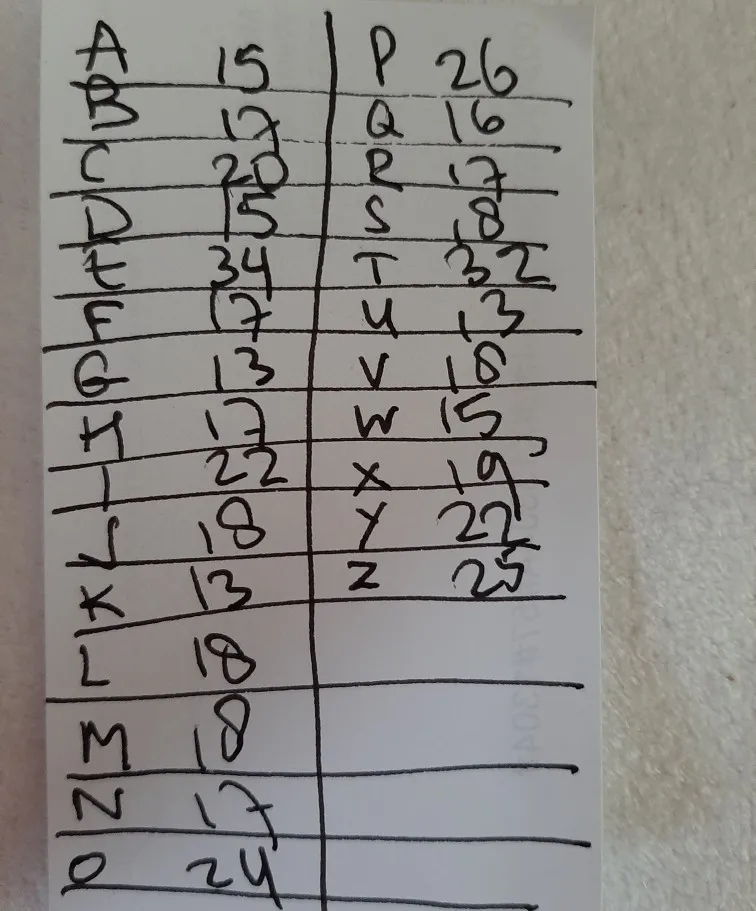 A 15
B 17
C 20
D 15
E 34
F 17
G 13
H 17
I 22
J 18
K 13
L 18
M 18
N 17
O 24
P 26
Q 16
R 17
S 18
T 32
U 13
V 18
W 15
X 19
Y 22
Z 25